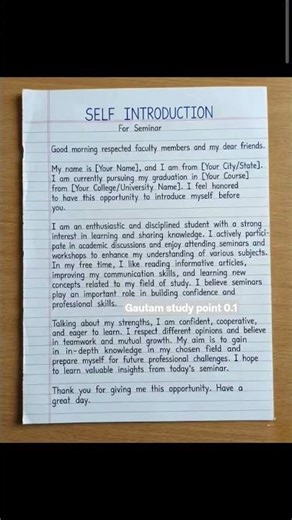 SELF INTRODUCTION
For Seminar
Good morning respected faculty members and my dear friends.
My name is [Your Name], and I am from [Your City/State].
I am currently pursuing my graduation in [Your Course]
from [Your College/University Name]. I feel honored
to have this opportunity to introduce myself before
you.
I am an enthusiastic and disciplined student with a strong
interest in learning and sharing knowledge. I actively partici-
pate in academic discussions and enjoy attending seminars and
workshops to enhance my understanding of various subjects.
In my free time, I like reading informative articles,
improving my communication skills, and learning new
concepts related to my field of study. I believe seminars
play an important role in building confidence and
professional skills.
Gautam study point 0.1
Talking about my strengths, I am confident, cooperative,
and eager to learn. I respect different opinions and believe
in teamwork and mutual growth. My aim is to gain
in in-depth knowledge in my chosen field and
prepare myself for future professional challenges. I hope
to learn valuable insights from today's seminar.
Thank you for giving me this opportunity. Have a
great day.